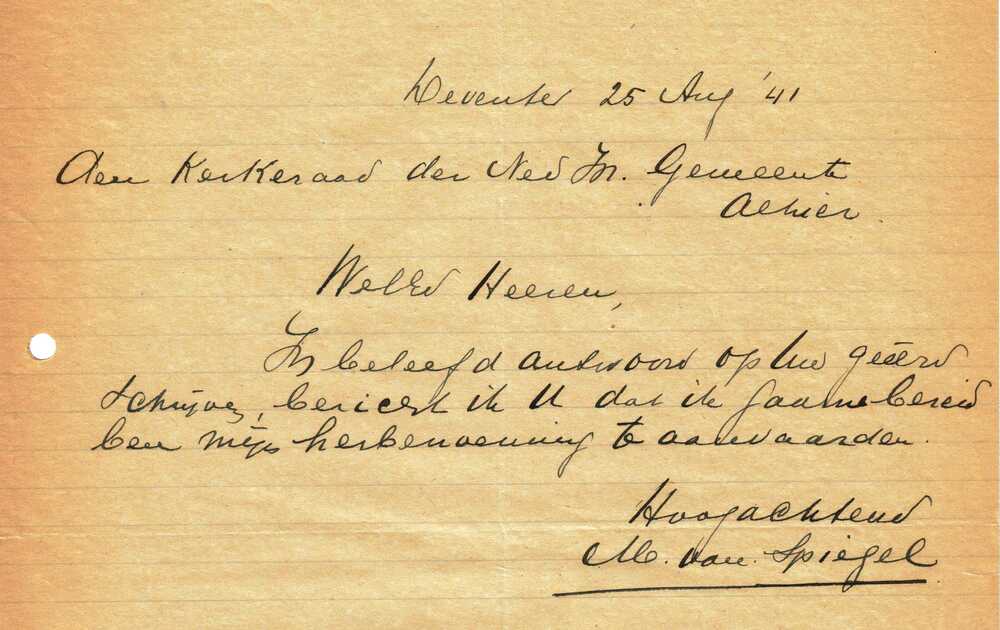 Deventer 25 Aug '41
Aan Kerkeraad der Ned Isr. Gemeente
Alhier.
WelEd Heeren,
In beleefd antwoord op Uw geëerd
schrijven, bericht ik U dat ik gaarne bereid
ben mijn herbenoeming te aanvaarden.
Hoogachtend
M. van Spiegel